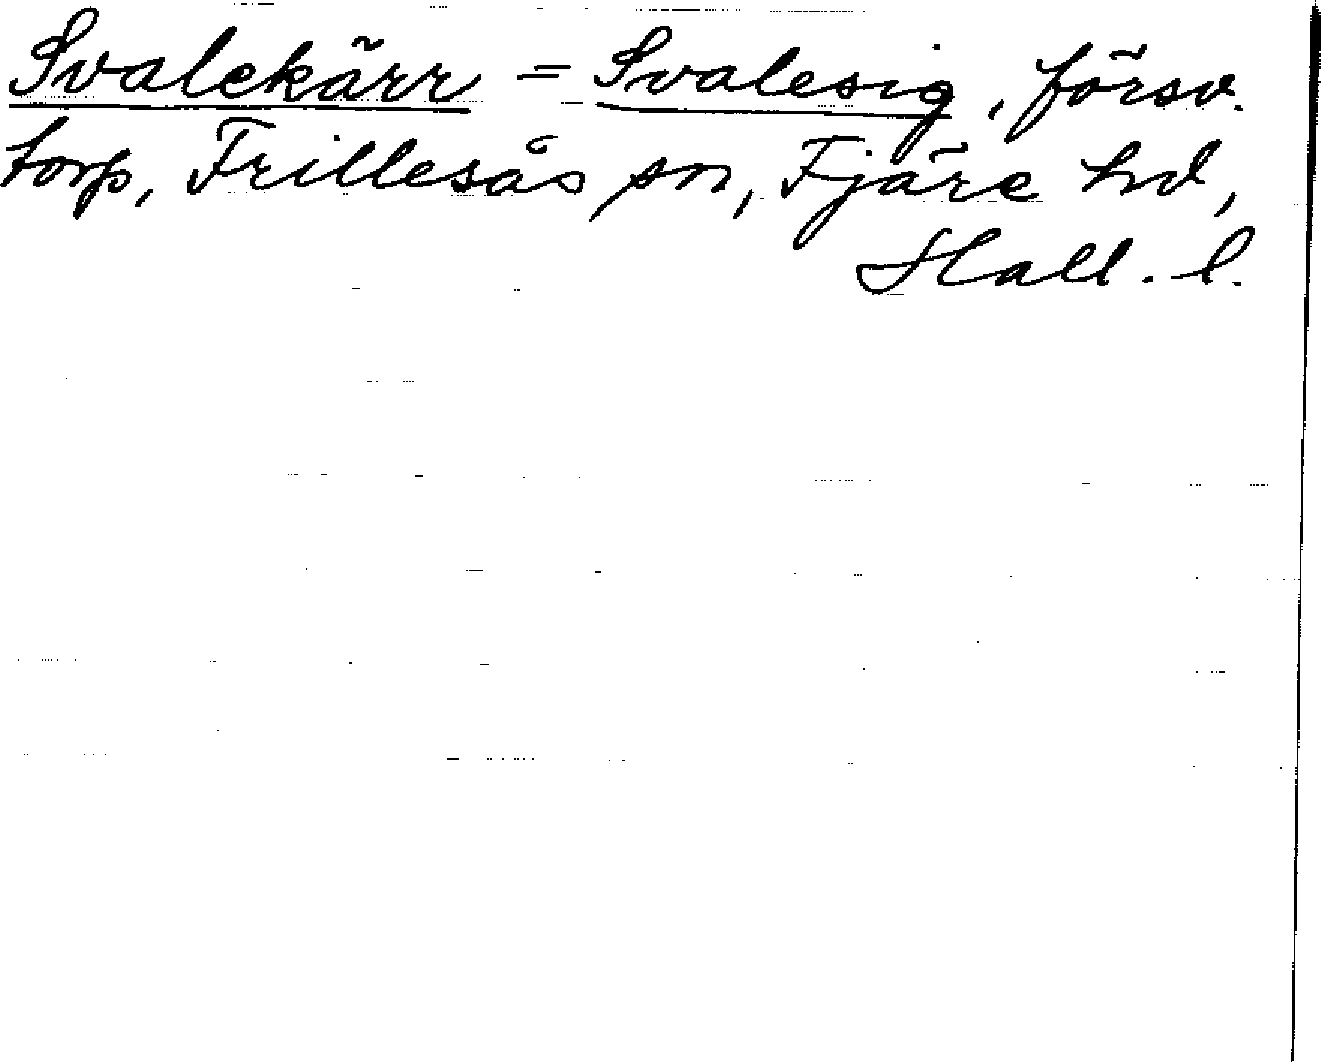 Svalekärr = Svalesig, försv.
torp, Frillesås sn, Fjäre hd,
Hall. l.